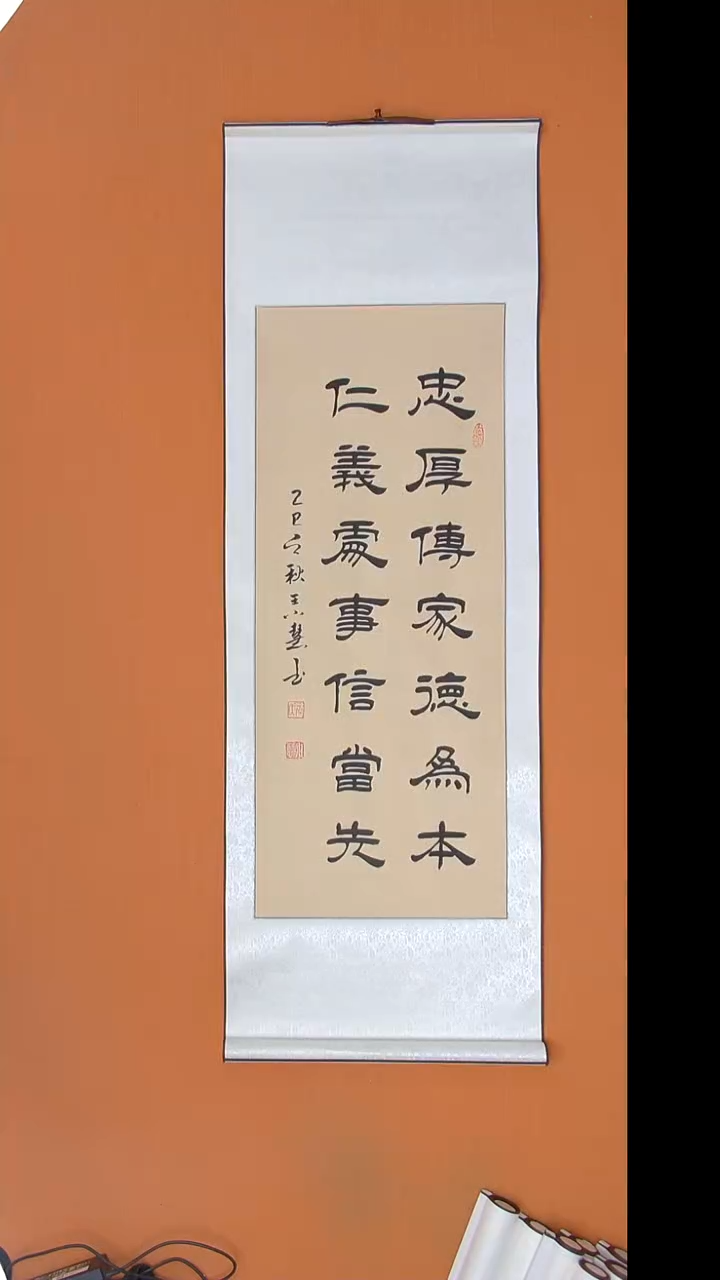 忠厚傳家德為本
仁義處事信當先
乙巳之秋王六慧書